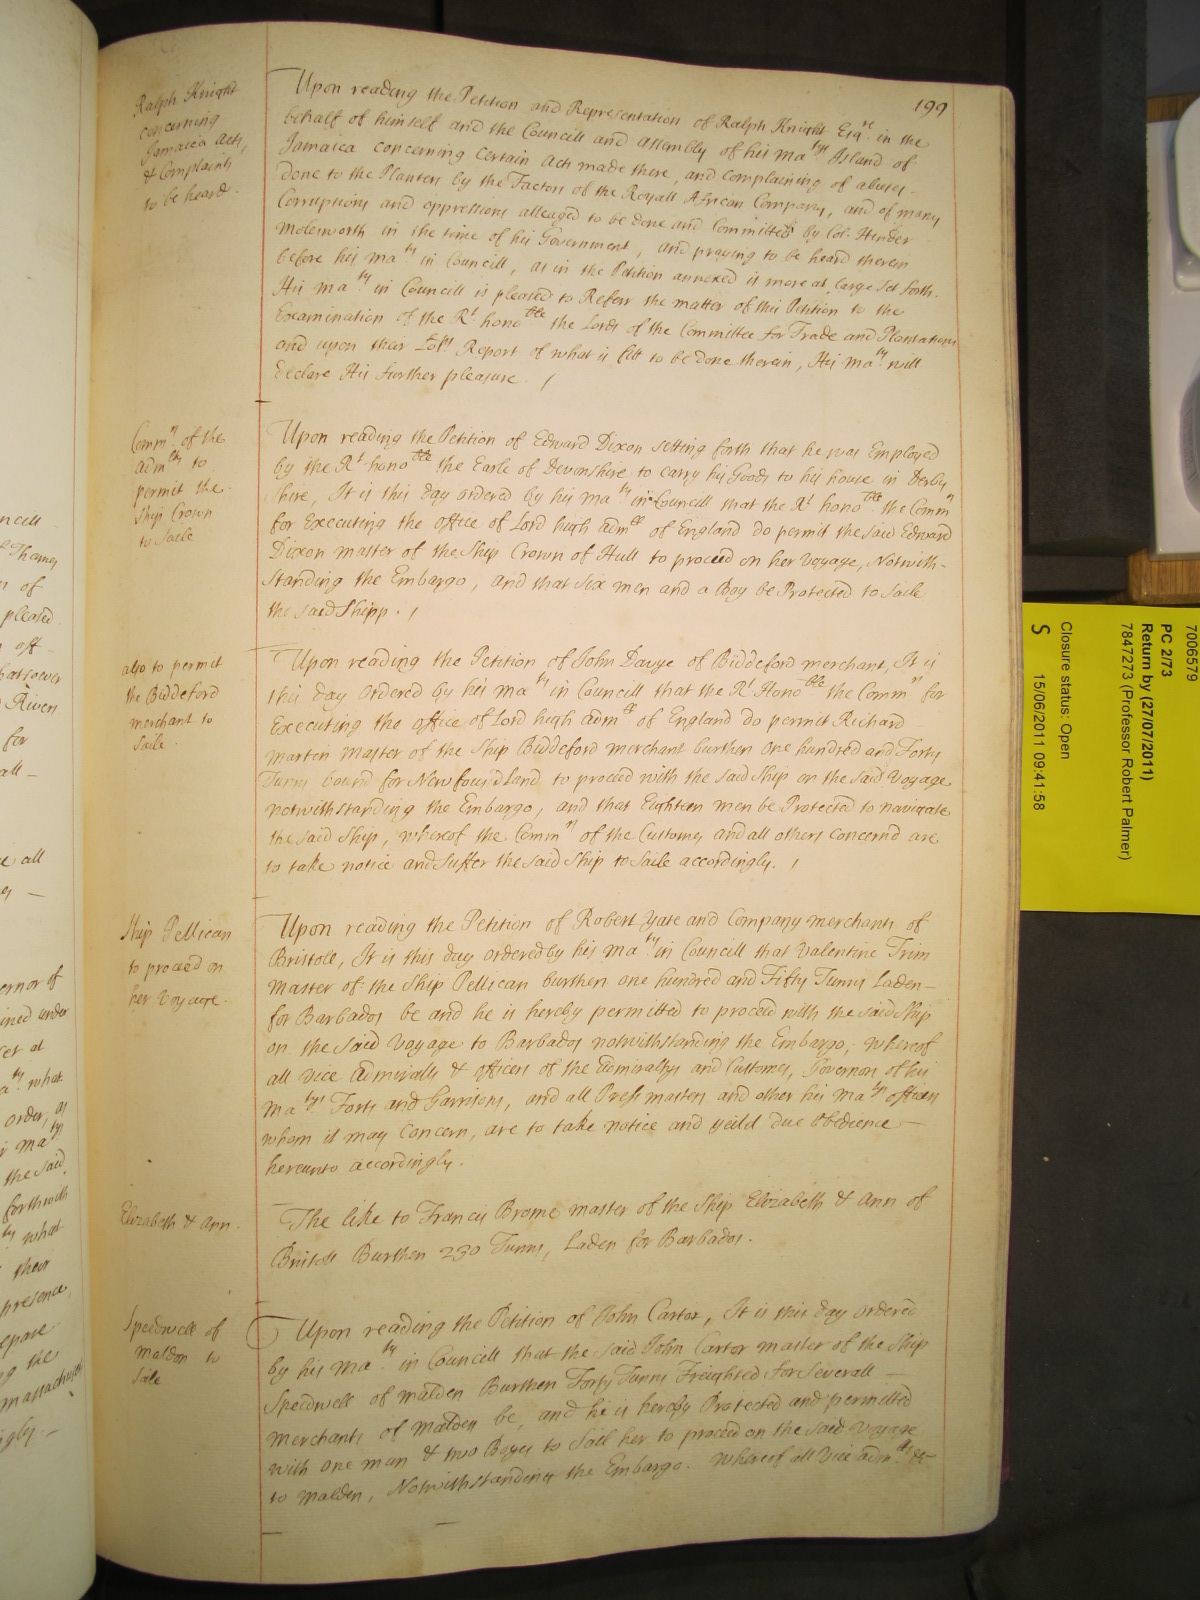 199
Ralph Knight
concerning
Jamaica Acts,
& Complaints
to be heard.
Upon reading the Petition and Representation of Ralph Knight Esqr. in the
behalf of himself and the Councill and Assembly of his Matys Island of
Jamaica concerning Certain Acts made there, and complaining of abuses
done to the Planters by the Factors of the Royall African Company, and of many
Corruptions and oppressions alleaged to be done and Committed by Col. Hender
Molesworth in the time of his Government, and praying to be heard therein
before his Maty in Councill, as in the Petition annexed is more at large Set forth.
His Maty in Councill is pleased to Referr the matter of this Petition to the
Examination of the Rt. honoble the Lords of the Committee for Trade and Plantations
and upon their Lopps Report of what is fitt to be done therein, His Maty will
declare His further pleasure. /
Commrs. of the
Admlty to
permit the
Ship Crown
to Saile
Upon reading the Petition of Edward Dixon setting forth that he was Employed
by the Rt. honoble the Earle of Devonshire to carry his Goods to his house in Derby
shire, It is this day ordered by his Maty in Councill that the Rt. honoble the Commrs
for Executing the office of Lord high Admll of England do permit the said Edward
Dixon master of the Ship Crown of Hull to proceed on her Voyage, Notwith-
standing the Embargo, and that Six men and a Boy be Protected to Saile
the said Shipp. /
also to permit
the Biddeford
merchant to
Saile.
Upon reading the Petition of John Davye of Biddeford merchant, It is
this day ordered by his Maty in Councill that the Rt. Honoble the Commrs for
Executing the office of Lord high Admll of England do permit Richard
Martin master of the Ship Biddeford merchant burthen one hundred and Forty
Tunns bound for Newfoundland to proceed with the said Ship on the said Voyage
notwithstanding the Embargo, and that Eighteen men be Protected to navigate
the said Ship, whereof the Commrs of the Customes and all others concernd are
to take notice and Suffer the said Ship to Saile accordingly. /
Ship Pellican
to proceed on
her Voyage.
Upon reading the Petition of Robert Yate and Company merchants of
Bristoll, It is this day ordered by his Maty in Councill that Valentine Trim
Master of the Ship Pellican burthen one hundred and Fifty Tunns Laden
for Barbados be and he is hereby permitted to proceed with the said Ship
on the said Voyage to Barbados notwithstanding the Embargo; whereof
all Vice Admiralls & officers of the Admiralty and Customes, Governors of his
Matys Forts and Garrisons, and all Press masters and other his Matys officers
whom it may Concern, are to take notice and yeild due Obedience
hereunto accordingly.
Elizabeth & Ann.
The like to Francis Brome master of the Ship Elizabeth & Ann of
Bristoll Burthen 230 Tunns, Laden for Barbados.
Speedwell of
Maldon to
Saile
Upon reading the Petition of John Carter, It is this day ordered
by his Maty in Councill that the said John Carter master of the Ship
Speedwell of Malden Burthen Forty Tunns Freighted for Severall
merchants of Malden be, and he is hereby Protected and permitted
with one man & two Boyes to Sail her to proceed on the said Voyage
to Malden, Notwithstanding the Embargo. Whereof all Vice Admlls &c
7006579
PC 2/73
Return by (27/07/2011)
7847273 (Professor Robert Palmer)
Closure status: Open
S 15/06/2011 09:41:58
ncill
Thames
of
pleased
off
hatsoever
Rivers
for
all
all
ernor of
ined under
at
what
order, as
Maty
the said
forthwith
what
their
presence,
epare
the